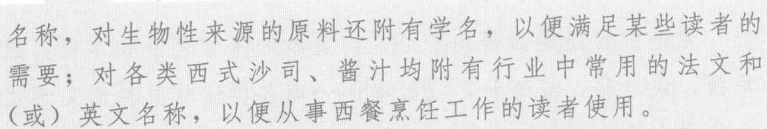 名称，对生物性来源的原料还附有学名，以便满足某些读者的
需要；对各类西式沙司、酱汁均附有行业中常用的法文和
（或）英文名称，以便从事西餐烹饪工作的读者使用。